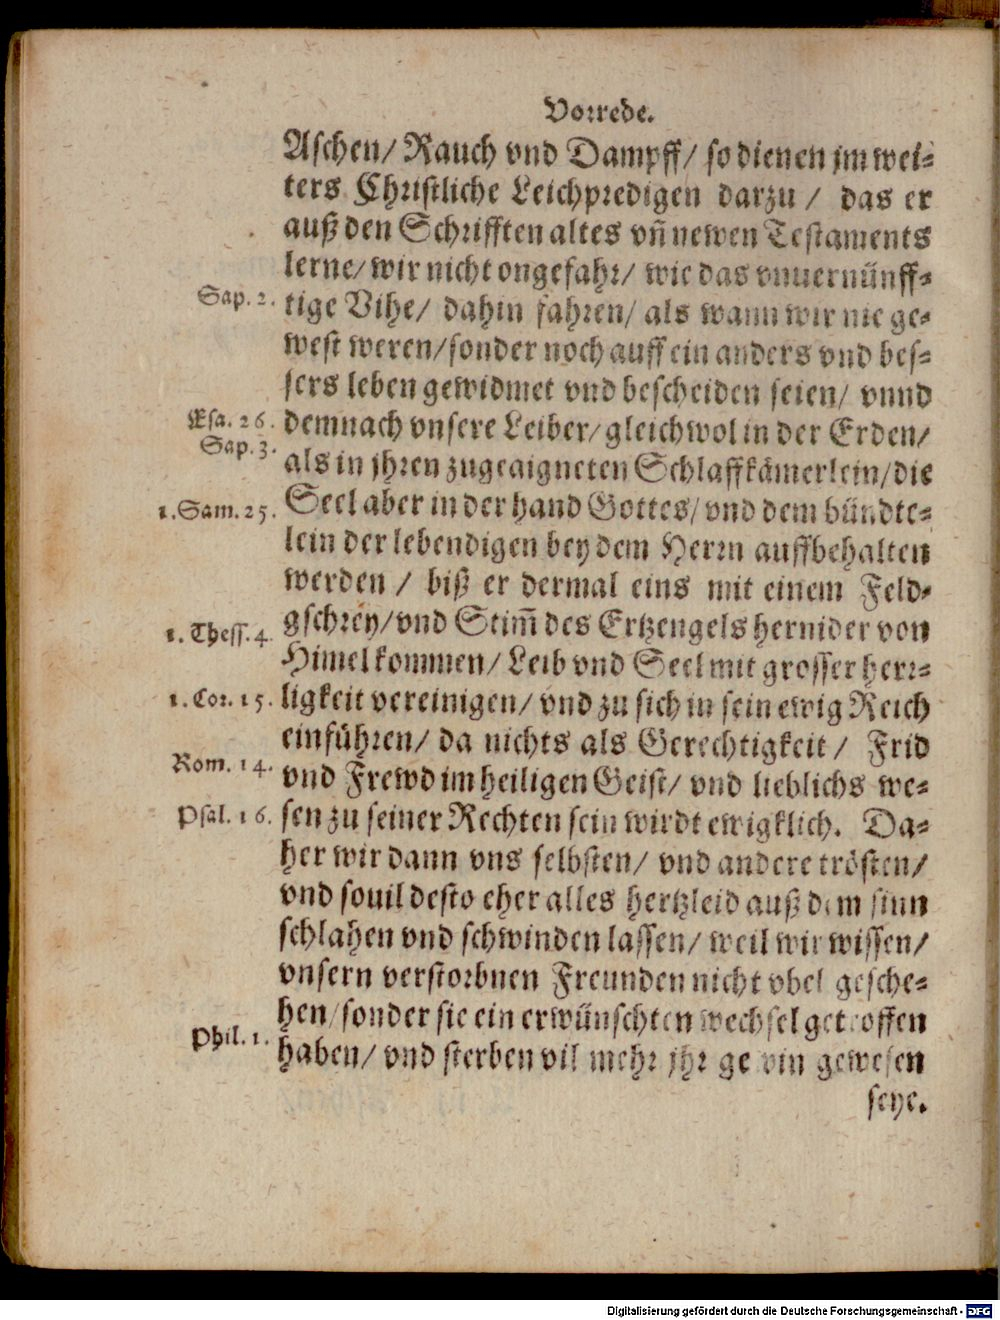 Vorrede.
Aschen/ Rauch vnd Dampff/ so dienen jm wei-
ters Christliche Leichpredigen darzu / das er
auß den Schrifften altes vñ newen Testaments
lerne/ wir nicht ongefahr/ wie das vnuernünff-
Sap. 2. tige Vihe/ dahin fahren/ als wann wir nie ge-
west weren/ sonder noch auff ein anders vnd bes-
sers leben gewidmet vnd bescheiden seien/ vnnd
Esa. 26. demnach vnsere Leiber/ gleichwol in der Erden/
Sap. 3. als in jhren zugeaigneten Schlaffkämerlein/ die
1. Sam. 25. Seel aber in der hand Gottes/ vnd dem bündte-
lein der lebendigen bey dem Herrn auffbehalten
werden / biß er dermal eins mit einem Feld-
1. Thess. 4. gschrey/ vnd Stim̃ des Ertzengels hernider von
Himel kommen/ Leib vnd Seel mit grosser herr-
1. Cor. 15. ligkeit vereinigen/ vnd zu sich in sein ewig Reich
einführen/ da nichts als Gerechtigkeit / Frid
Rom. 14. vnd Frewd im heiligen Geist/ vnd lieblichs we-
Psal. 16. sen zu seiner Rechten sein wirdt ewigklich. Da-
her wir dann vns selbsten/ vnd andere trösten/
vnd souil desto eher alles hertzleid auß dem sinn
schlahen vnd schwinden lassen/ weil wir wissen/
vnsern verstorbnen Freunden nicht vbel gesche-
hen/ sonder sie ein erwünschten wechsel getroffen
Phil. 1. haben/ vnd sterben vil mehr jhr gewin gewesen
seye.
Digitalisierung gefördert durch die Deutsche Forschungsgemeinschaft - DFG